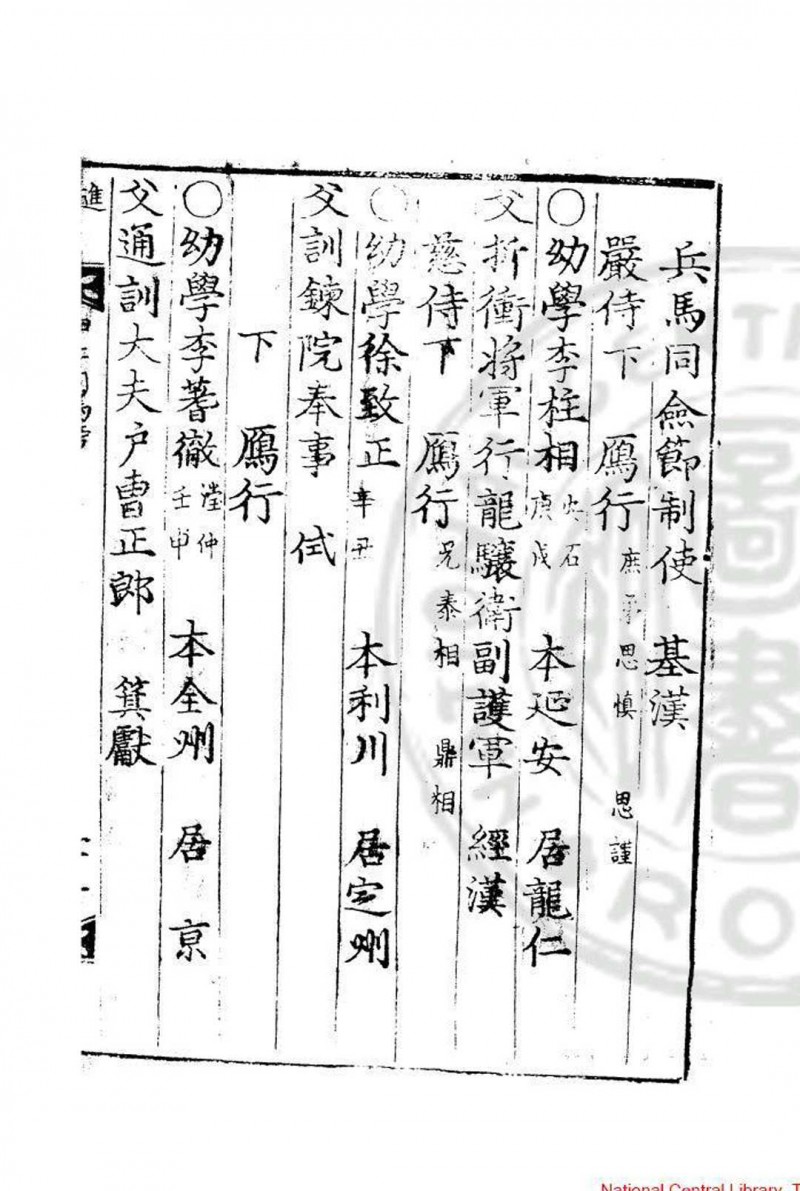 兵馬同僉節制使 基漢
嚴侍下 鴈行 庶弟思慎 思謹
〇幼學李柱相 石 庚戌 本延安 居龍仁
父折衝將軍行龍驤衛副護軍 經漢
慈侍下 鴈行 兄泰相 鼎相
〇幼學徐致正 辛丑 本利川 居定州
父訓鍊院奉事 侙
下 鴈行
〇幼學李蓍徹 瀅仲 壬申 本全州 居京
父通訓大夫戶曹正郎 箕獻
進
National Central Library, T